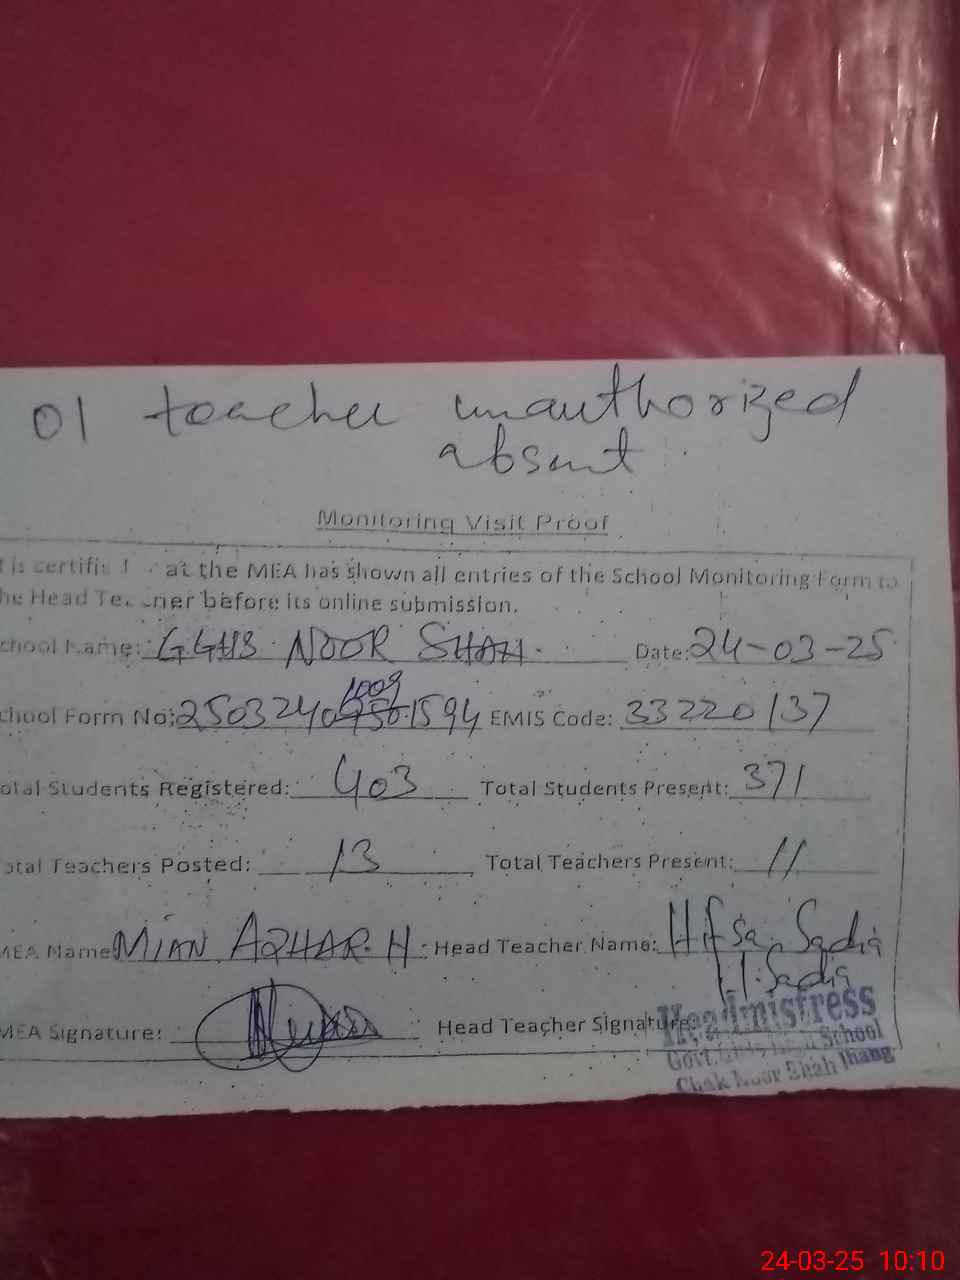 01 teacher unauthorized
absent
Monitoring Visit Proof
is certifi at the MEA has shown all entries of the School Monitoring Form to
he Head Te ner before its online submission.
chool Name: GGHS NOOR SHAH. Date: 24-03-25
chool Form No: 2503240 1009 1594 EMIS Code: 33220137
otal Students Registered: 403 Total Students Present: 371
otal Teachers Posted: 13 Total Teachers Present: 11
MEA Name MIAN AZHAR. H. Head Teacher Name: Hifsa Sadia
H. Sadia
MEA Signature: Head Teacher Signature
Headmistress
Govt. Girls High School
Chak Noor Shah Jhang
24-03-25 10:10